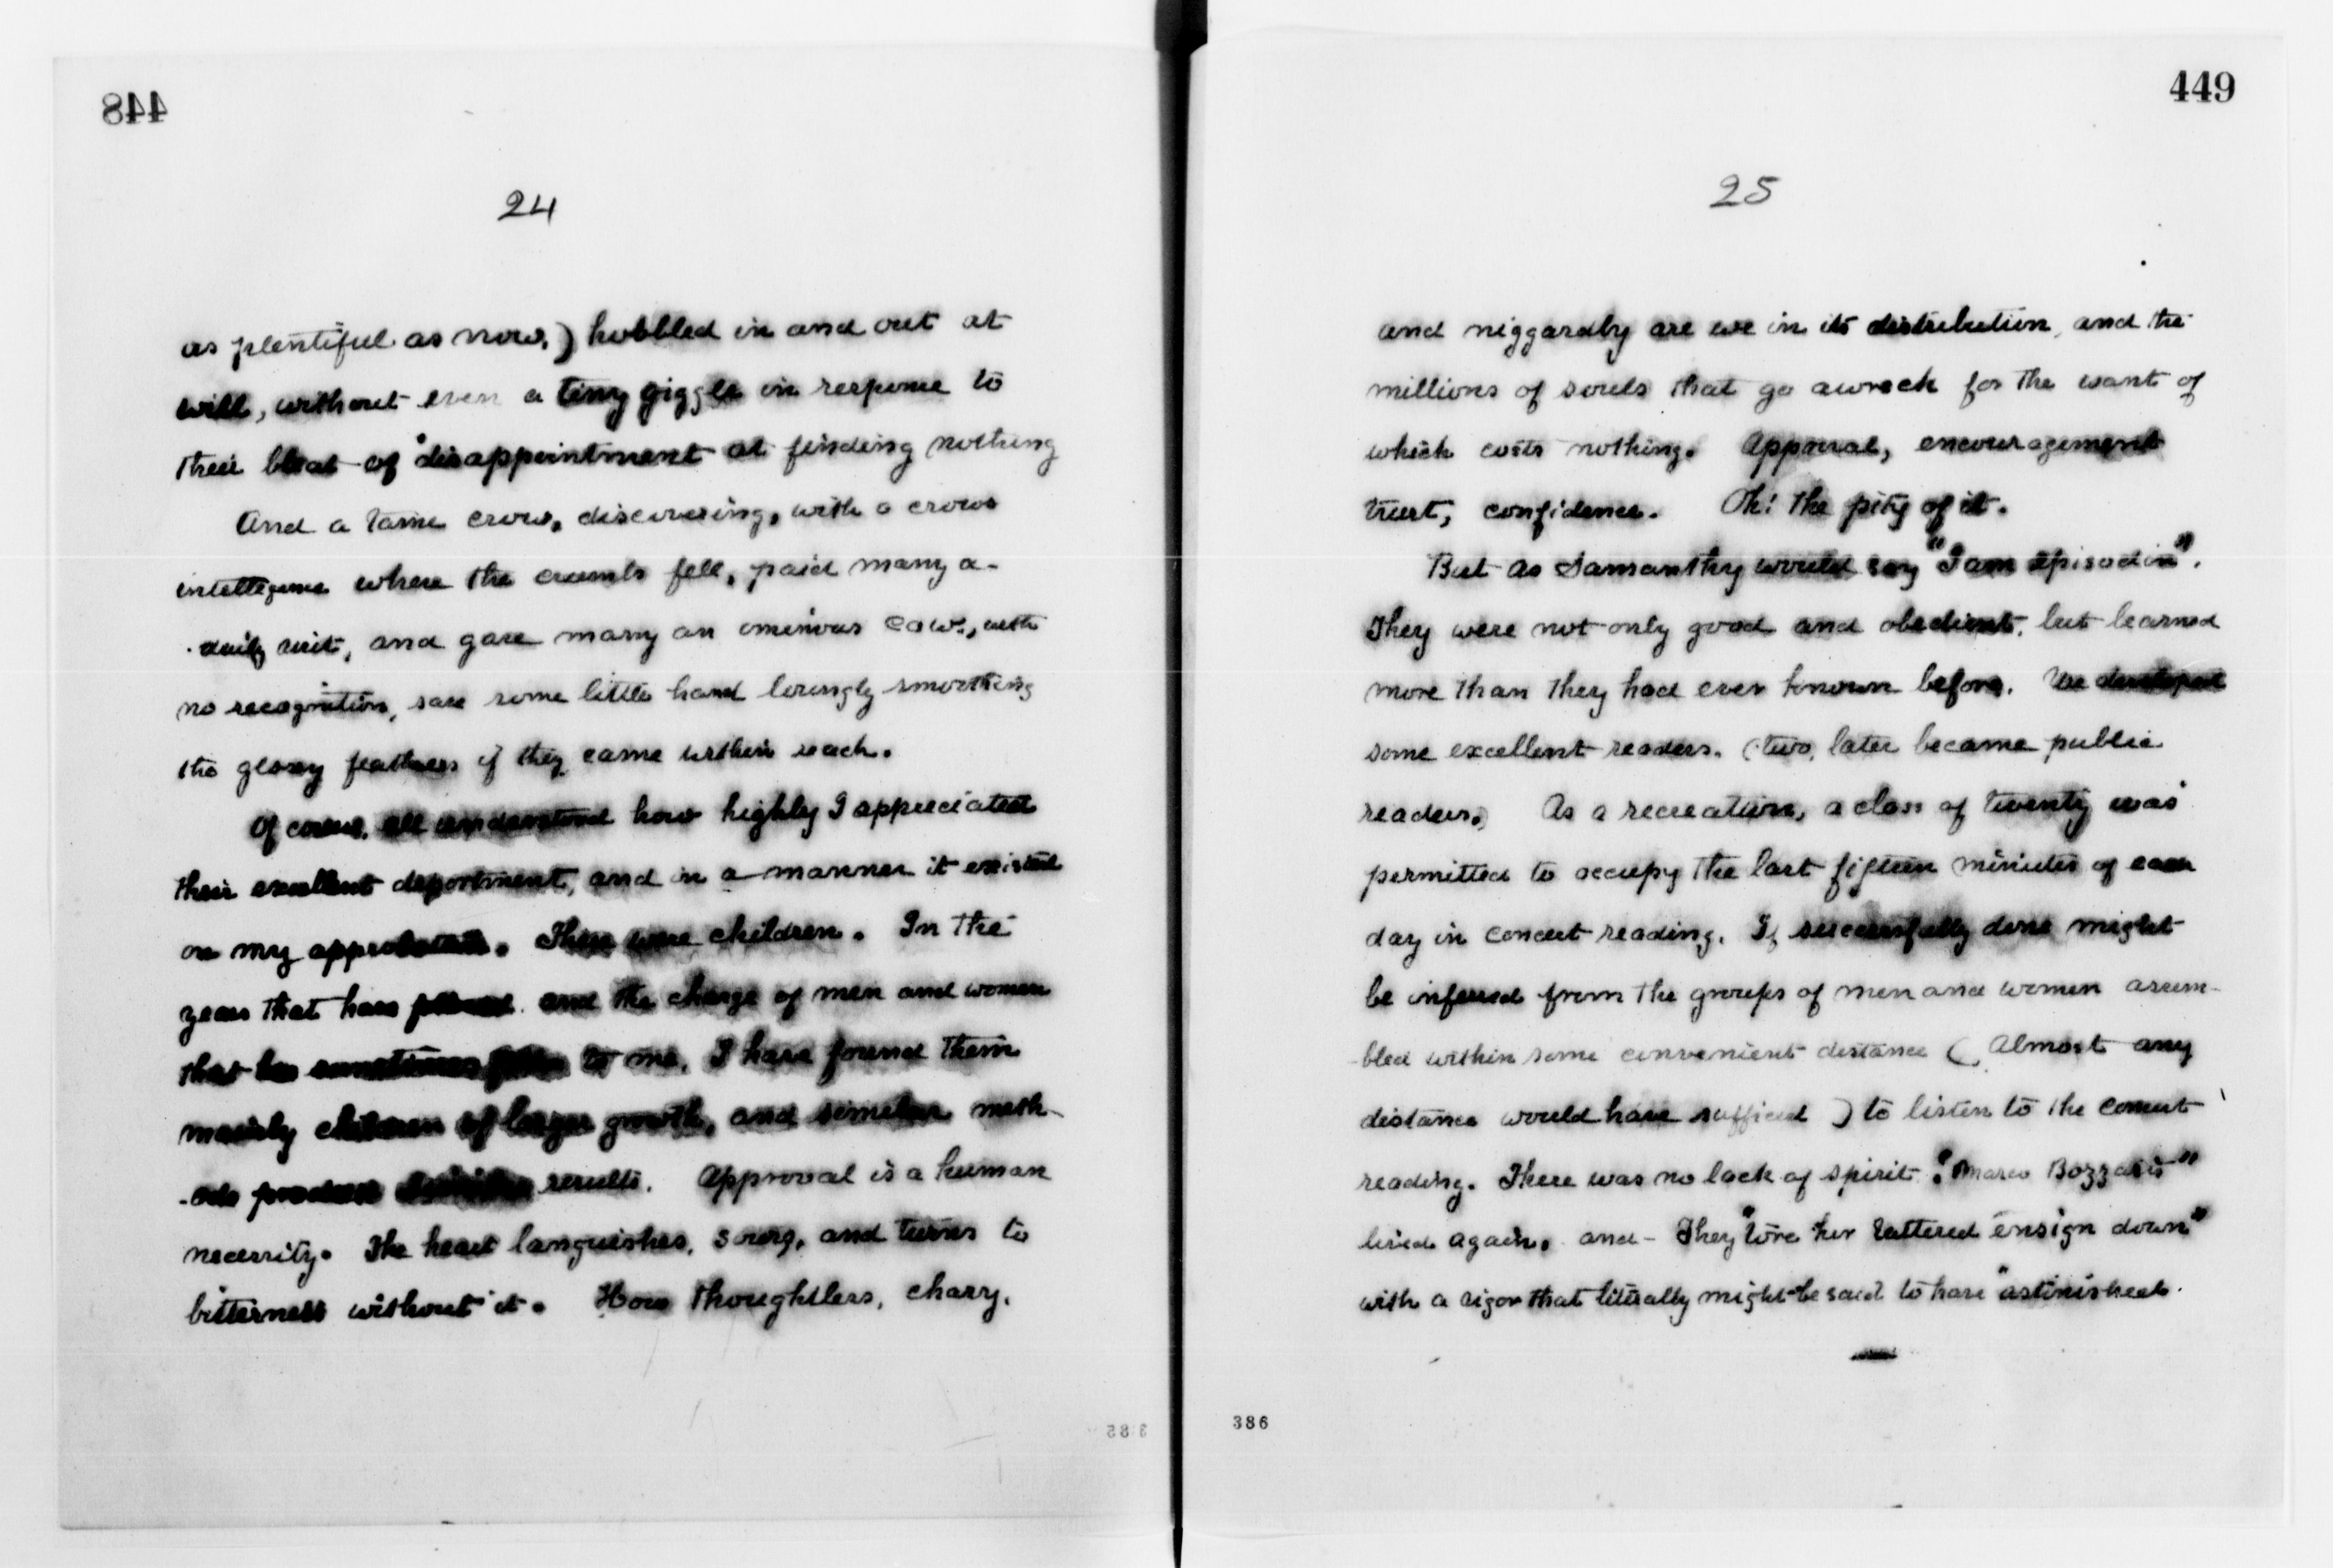 448
24
as plentiful as now,) hobbled in and out at
will, without even a tiny giggle in response to
their bleat of disappointment at finding nothing
And a tame crow, discovering, with a crows
intelligence where the crumbs fell, paid many a
daily visit, and gave many an ominous caw, with
no recognition, save some little hand lovingly smoothing
the glossy feathers if they came within reach.
Of course, all understood how highly I appreciated
their excellent deportment, and in a manner it existed
on my approbation. These were children. In the
years that have followed and the charge of men and women
that has sometimes fallen to me, I have found them
mainly children of larger growth, and similar meth-
-ods produce similar results. Approval is a human
necessity. The heart languishes, sours, and turns to
bitterness without it. How thoughtless, chary,
385
449
25
and niggardly are we in its distribution, and the
millions of souls that go awreck for the want of
which costs nothing. Approval, encouragement
trust, confidence. Oh! the pity of it.
But as Samanthy would say "I am episodin".
They were not only good and obedient, but learned
more than they had ever known before. We developed
some excellent readers. (two, later became public
readers) As a recreation, a class of twenty was
permitted to occupy the last fifteen minutes of each
day in concert reading. If successfully done might
be inferred from the groups of men and women assem-
bled within some convenient distance (Almost any
distance would have sufficed) to listen to the concert
reading. There was no lack of spirit. "Marco Bozzaris"
lived again. and - They "tore her tattered ensign down"
with a vigor that literally might be said to have "astonished
386